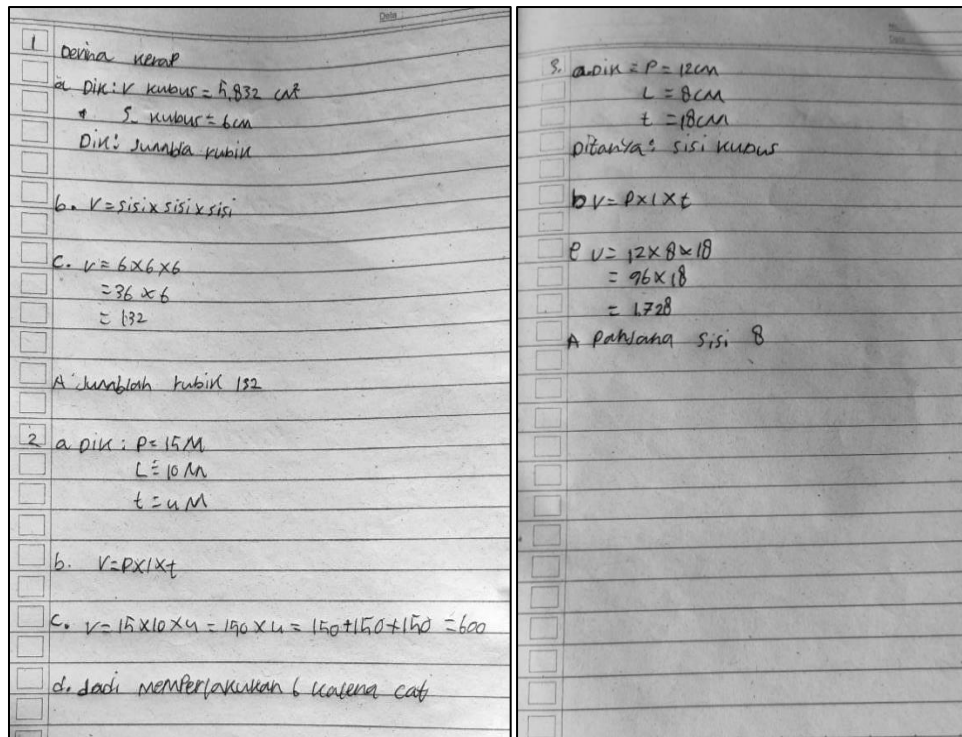 Date
1
Derina kerap
a Dik : V kubus = 5,832 cm³
S kubus = 6 cm
Dik : Jumbla rubik
b. V = sisi x sisi x sisi
c. V = 6 x 6 x 6
= 36 x 6
= 132
A Jumblah rubik 132
2 a Dik : P = 15 M
L = 10 M
t = 4 M
b. V = P x l x t
c. V = 15 x 10 x 4 = 150 x 4 = 150 + 150 + 150 = 600
d. Jadi memperlakukan 6 kalena cat
3. a. Dik = P = 12 cm
L = 8 cm
t = 18 cm
Ditanya : sisi kubus
b V = P x l x t
V = 12 x 8 x 18
= 96 x 18
= 1.728
A Panjana sisi 8